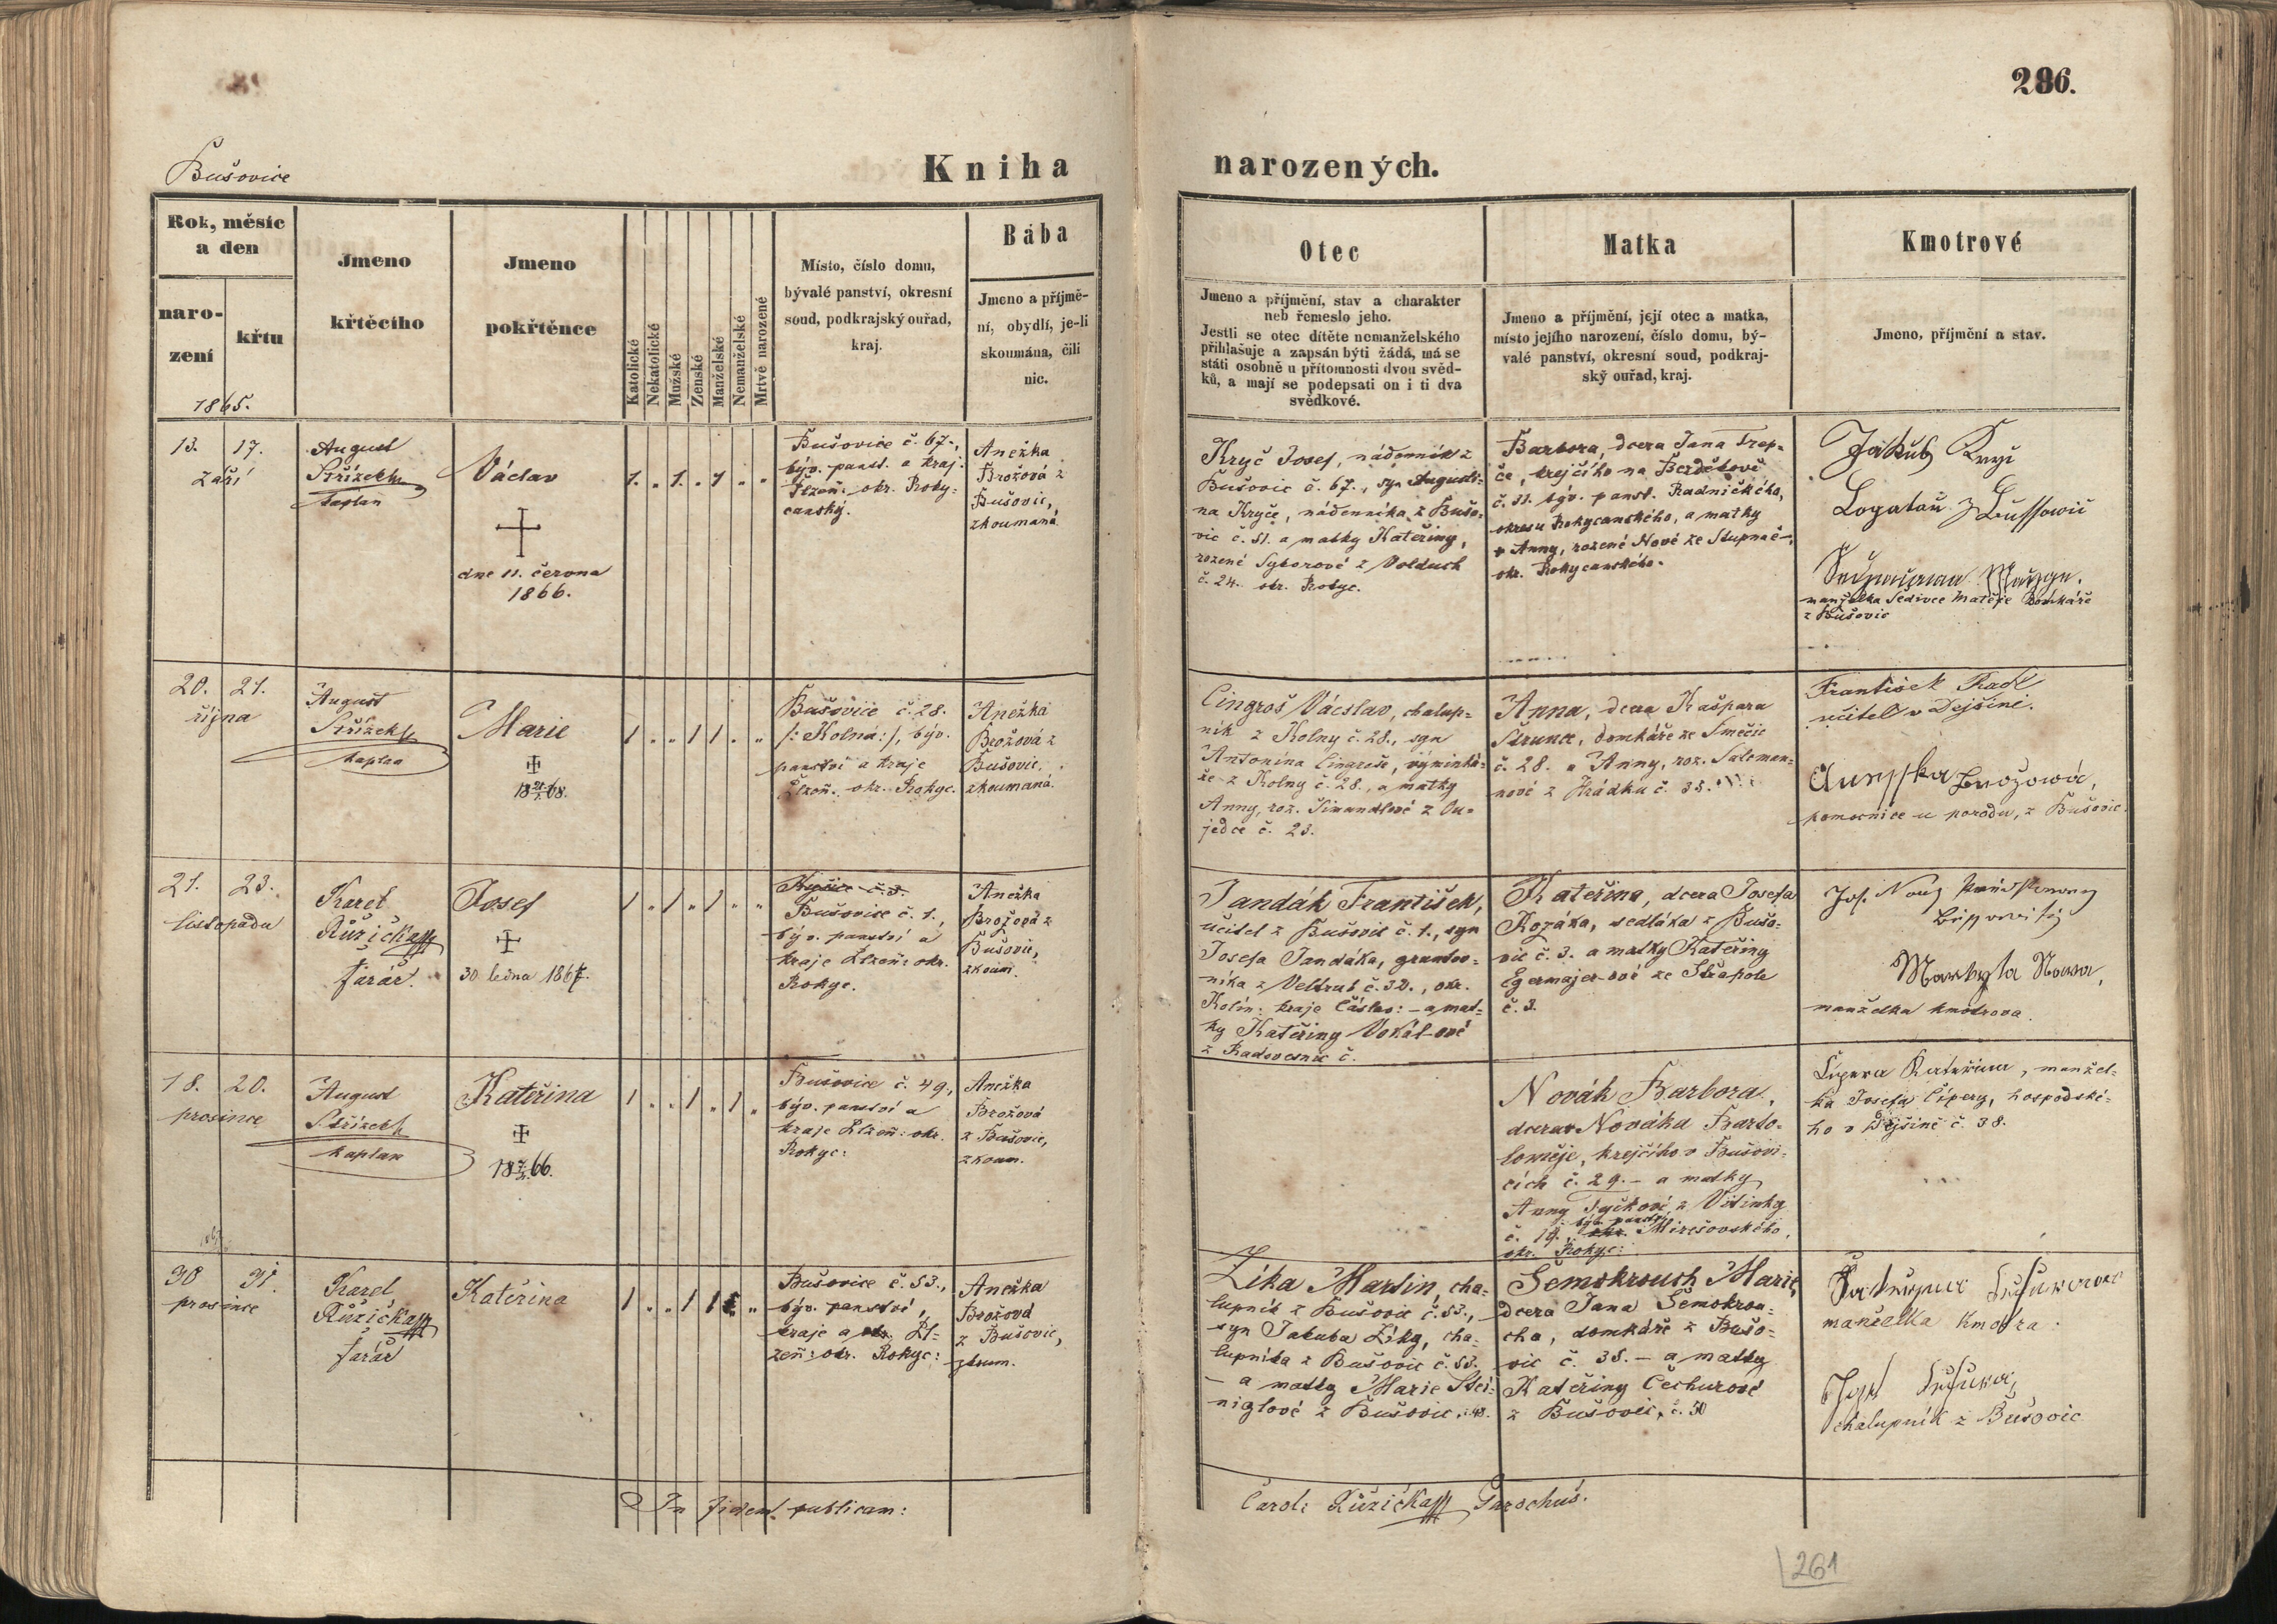 286.
Bušovice
Kniha narozených.
Rok, měsíc
a den
naro-
zení
křtu
1865.
Jmeno
křtěcího
Jmeno
pokřtěnce
Katolické
Nekatolické
Mužské
Ženské
Manželské
Nemanželské
Mrtvě narozené
Místo, číslo domu,
bývalé panství, okresní
soud, podkrajský ouřad,
kraj.
Bába
Jmeno a příjmě-
ní, obydlí, je-li
skoumána, čili
nic.
Otec
Jmeno a příjmění, stav a charakter
neb řemeslo jeho.
Jestli se otec dítěte nemanželského
přihlašuje a zapsán býti žádá, má se
státi osobně u přítomnosti dvou svěd-
ků, a mají se podepsati on i ti dva
svědkové.
Matka
Jmeno a příjmění, její otec a matka,
místo jejího narození, číslo domu, bý-
valé panství, okresní soud, podkraj-
ský ouřad, kraj.
Kmotrové
Jmeno, příjmění a stav.
13. 17.
září
August
Střízek
kaplan
Václav
dne 11. června
1866.
1. „ 1. „ 1 „ „
Bušovice č. 67.,
býv. panst. a kraj.
Plzeň: okr. Roky-
canský.
Anežka
Brožová z
Bušovic,
zkoumaná.
Kryč Josef, nádenník z
Bušovic č. 67., syn Augusti-
na Kryče, nádenníka z Bušo-
vic č. 51. a matky Kateřiny,
rozené Syborové z Volduch
č. 24. okr. Rokyc.
Barbora, dcera Jana Trep-
če, krejčího na
č. 31. býv. panst. Radnického,
okresu Rokycanského, a matky
Anny, rozené Nové ze Stupna č –,
okr. Rokycanského.
Jakub Kryč
z
manželka Šedivce Matěje domkáře
z Bušovic
20. 21.
října
August
Střízek
kaplan
Marie
18 68.
1 „ „ 1 1 „ „
Bušovice č. 28.
/: Kolna :/, býv.
panství a kraje
Plzeň. okr. Rokyc.
Anežka
Brožová z
Bušovic,
zkoumaná.
Cingroš Václav, chalup-
ník z Kolny č. 28., syn
Antonína Cingroše, výminká-
ře z Kolny č. 28., a matky
Anny, roz. Šimandlové z Ou-
jedce č. 23.
Anna, dcera Kašpara
Štrunce, domkáře ze Smečic
č. 28. a Anny, roz. Saleman-
nové z Hrádku č. 35.
František Radl
učitel v Dejšině.
Brožowá,
pomocnice u porodu, z Bušovic.
21. 23.
listopadu
Karel
Růžička
farář.
Josef
30 ledna 1867.
1 „ 1 „ 1 „ „
Kyšice č. 3.
Bušovice č. 1.,
býv. panství a
kraje Plzeň: okr.
Rokyc.
Anežka
Brožová z
Bušovic,
zkoum.
Jandák František,
učitel z Bušovic č. 1., syn
Josefa Jandáka, gruntov-
níka z Veltrub č. 32., okr.
Kolín: kraje Čáslav: – a mat-
ky Kateřiny Vokál-ové
z Radovesnic č.
Kateřina, dcera Josefa
Kozáka, sedláka z Bušo-
vic č. 3. a matky Kateřiny
Egermajer-ové ze Střapole
č. 3.
Jos. Nový
Markyta Nowa,
manželka kmotrova.
18. 20.
prosince
August
Střízek
kaplan
Kateřina
18 66.
1 „ „ 1 „ 1 „
Bušovice č. 49.,
býv. panství a
kraje Plzeň: okr.
Rokyc:
Anežka
Brožová
z Bušovic,
zkoum.
Novák Barbora,
dcera Nováka Barto-
loměje, krejčího v Bušovi-
cích č. 29. – a matky
Anny Tyčkové z Vitinky
č. 19., býv. panství Mirešovského,
okr. Rokyc:
Čípera Kateřina, manžel-
ka Josefa Čípery, hospodské-
ho v Dýšině č. 38.
30 31.
prosince
Karel
Růžička
farář
Kateřina
1 „ „ 1 1 „ „
Bušovice č. 53.,
býv. panství,
kraje a okr. Pl-
zeň: okr. Rokyc:
Anežka
Brožová
z Bušovic,
zkoum.
Líka Martin, cha-
lupník z Bušovic č. 53.,
syn Jakuba Líky, cha-
lupníka z Bušovic č. 53.
– a matky Marie Stei-
niglové z Bušovic, č. 48.
Šemokrouch Marie,
dcera Jana Šemokrou-
cha, domkáře z Bušo-
vic č. 38. – a matky
Kateřiny Čechurové
z Bušovic, č. 50
manželka kmotra.
chalupník z Bušovic
In fidem publicam:
Carol: Růžička Parochus.
261